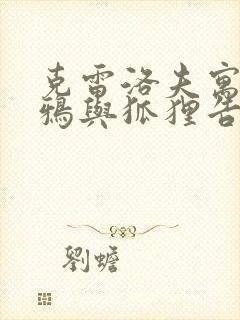 克雷洛夫寓
鴉與狐狸告
劉蟾